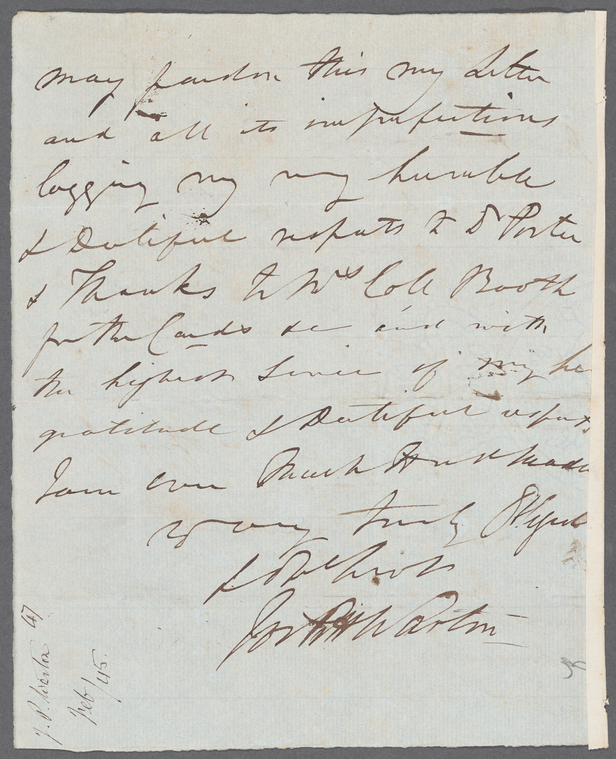 may pardon this my Letter
and all its imperfections
begging my my humble
& Dutiful respects to Dr Porter
& Thanks to Mrs Coll Booth
for the Cards &c and with
the highest Sence of my he
gratitude & Dutiful respects
I am ever Much Hond Madam
very truly
&
Jos
J. P.
Feb/45.